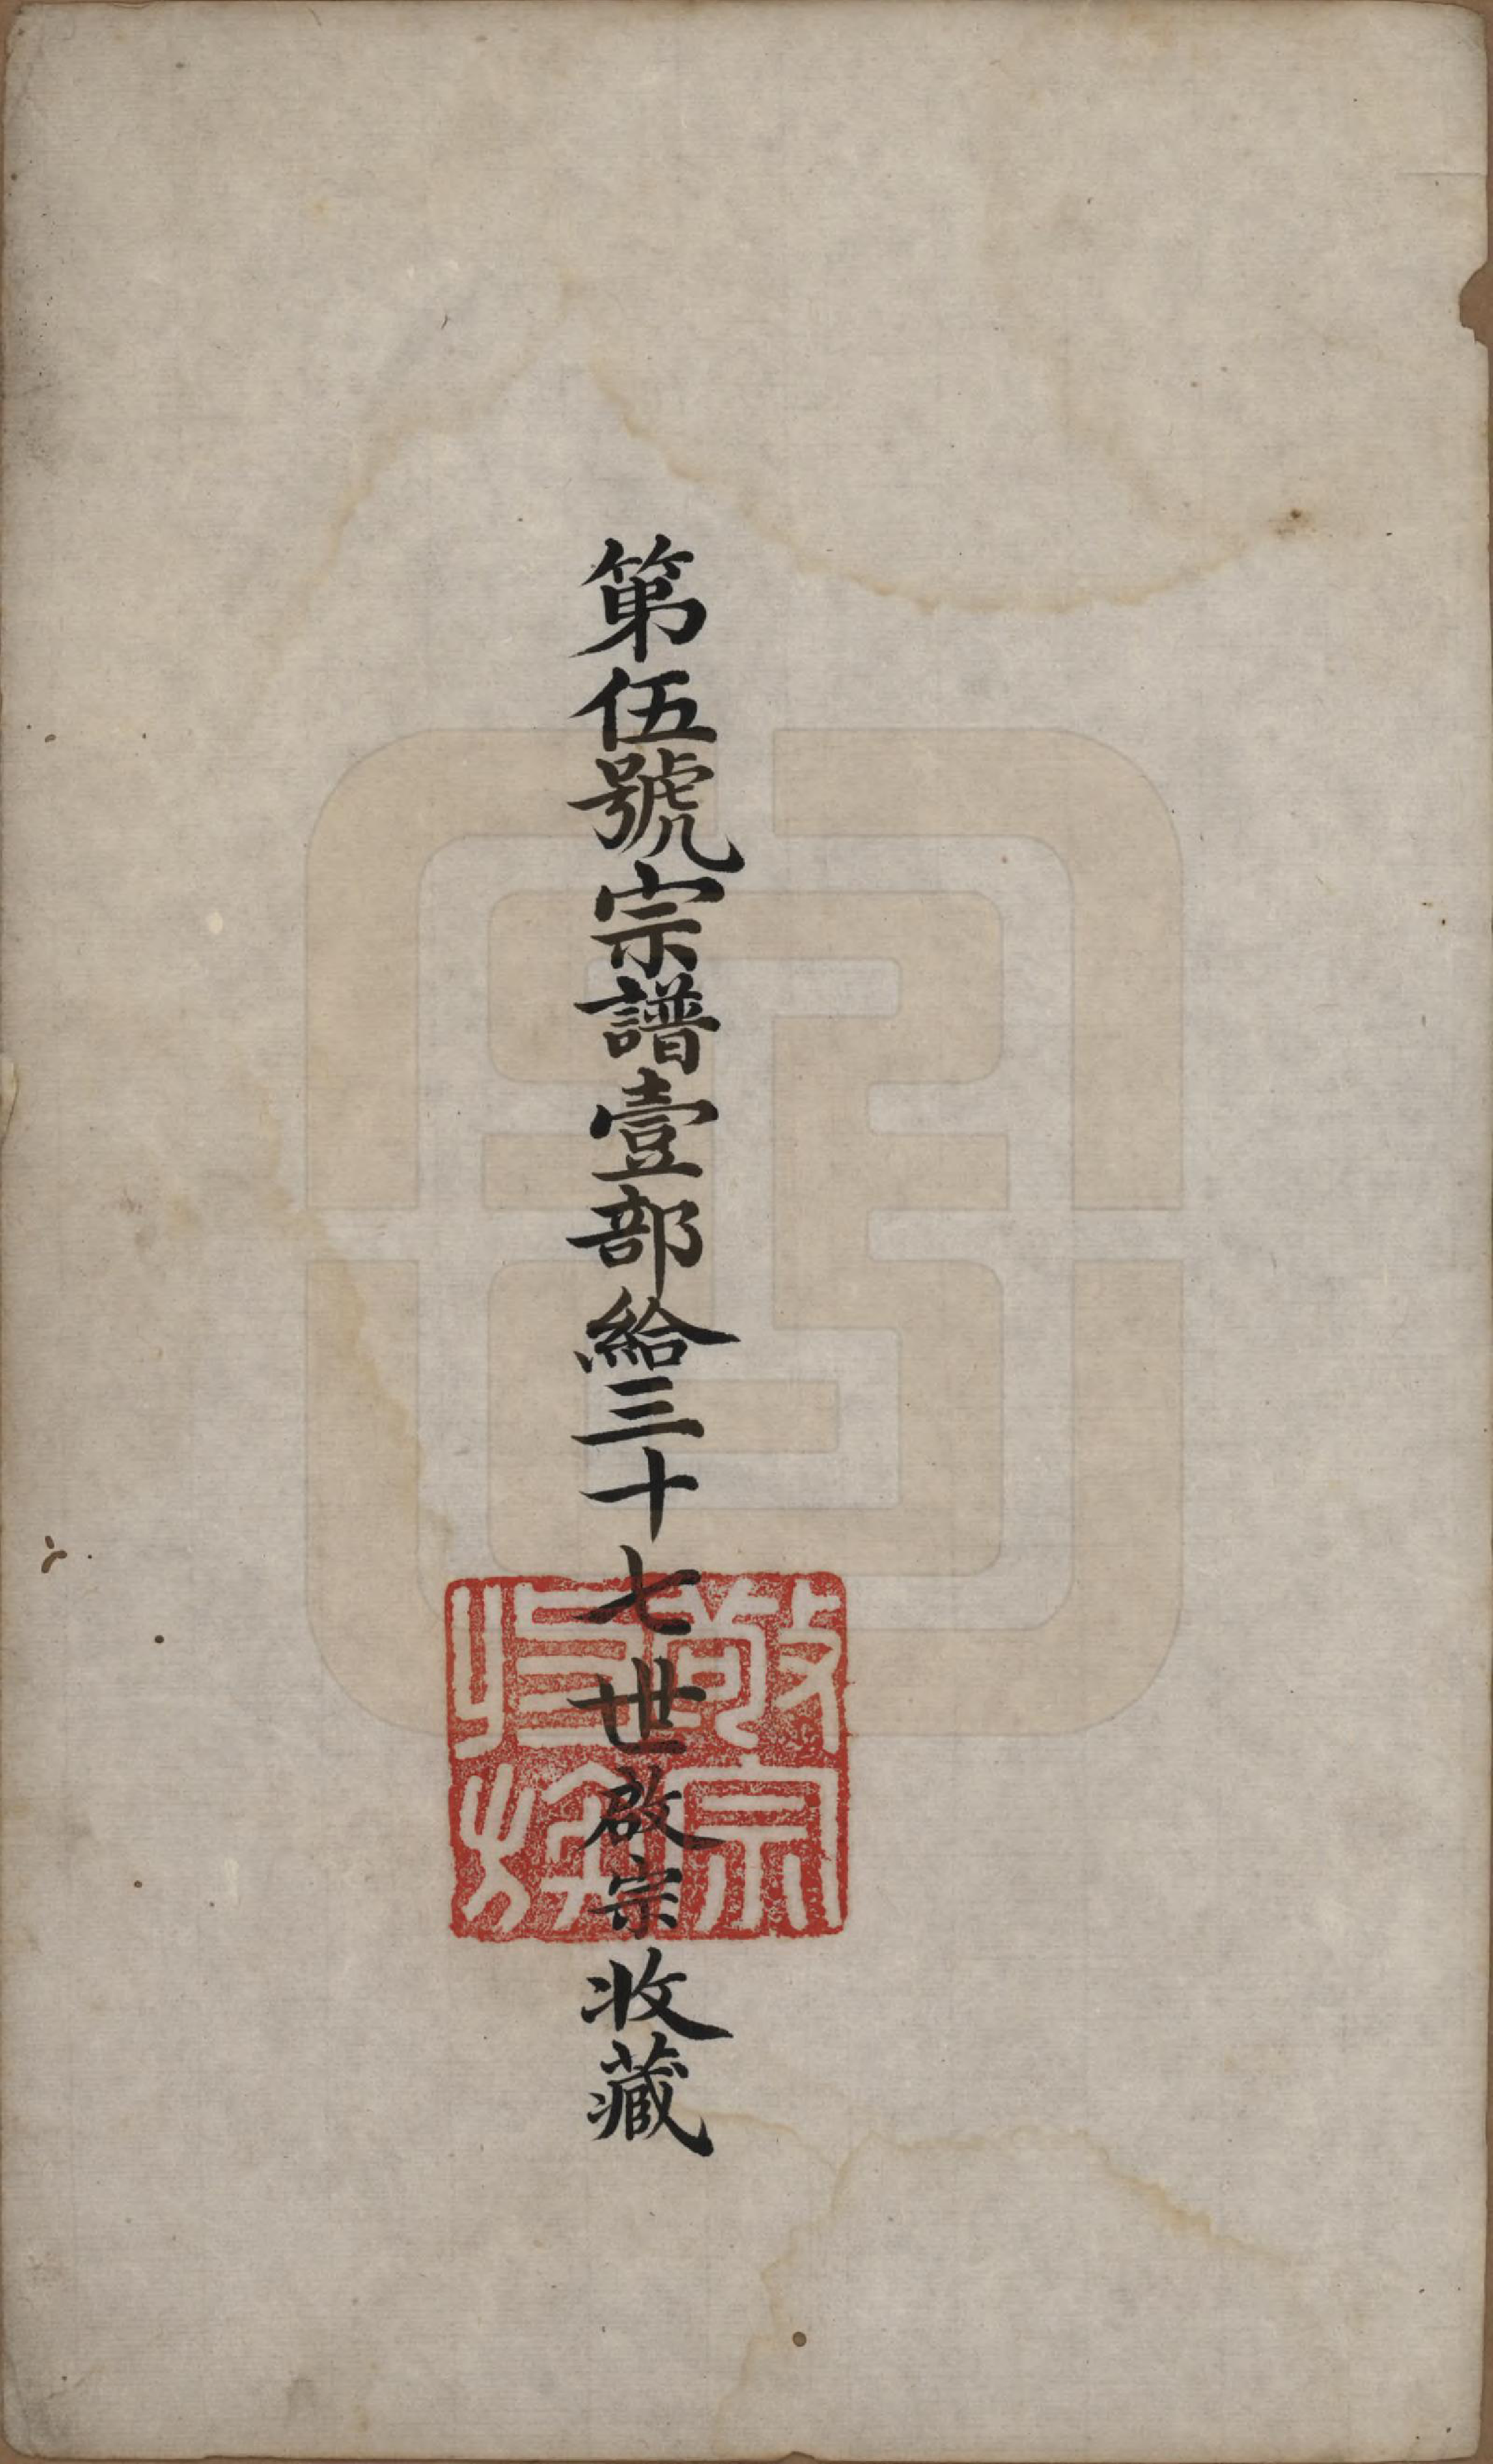 第伍號宗譜壹部給三十七世啟宗收藏
敬宗收族